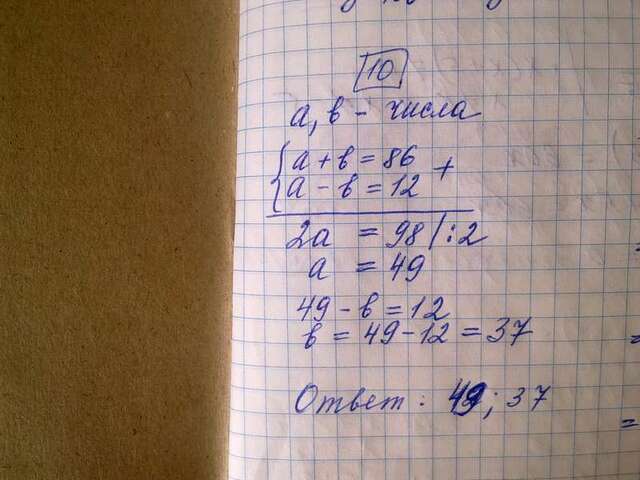 10
а, в - числа
а + в = 86
а - в = 12 +
2а = 98 | : 2
а = 49
49 - в = 12
в = 49 - 12 = 37
Ответ : 49 ; 37